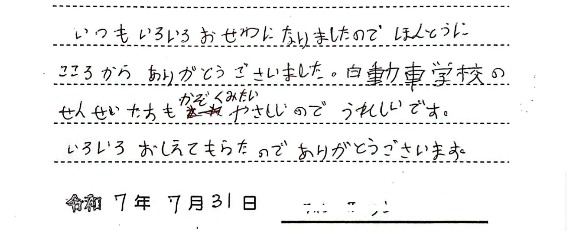 いつもいろいろおせわになりましたので ほんとうに
こころから ありがとうございました。自動車学校の
せんせいたちも かぞくみたい やさしいので うれしいです。
いろいろ おしえてもらたので ありがとうございます。
令和 7年 7月31日